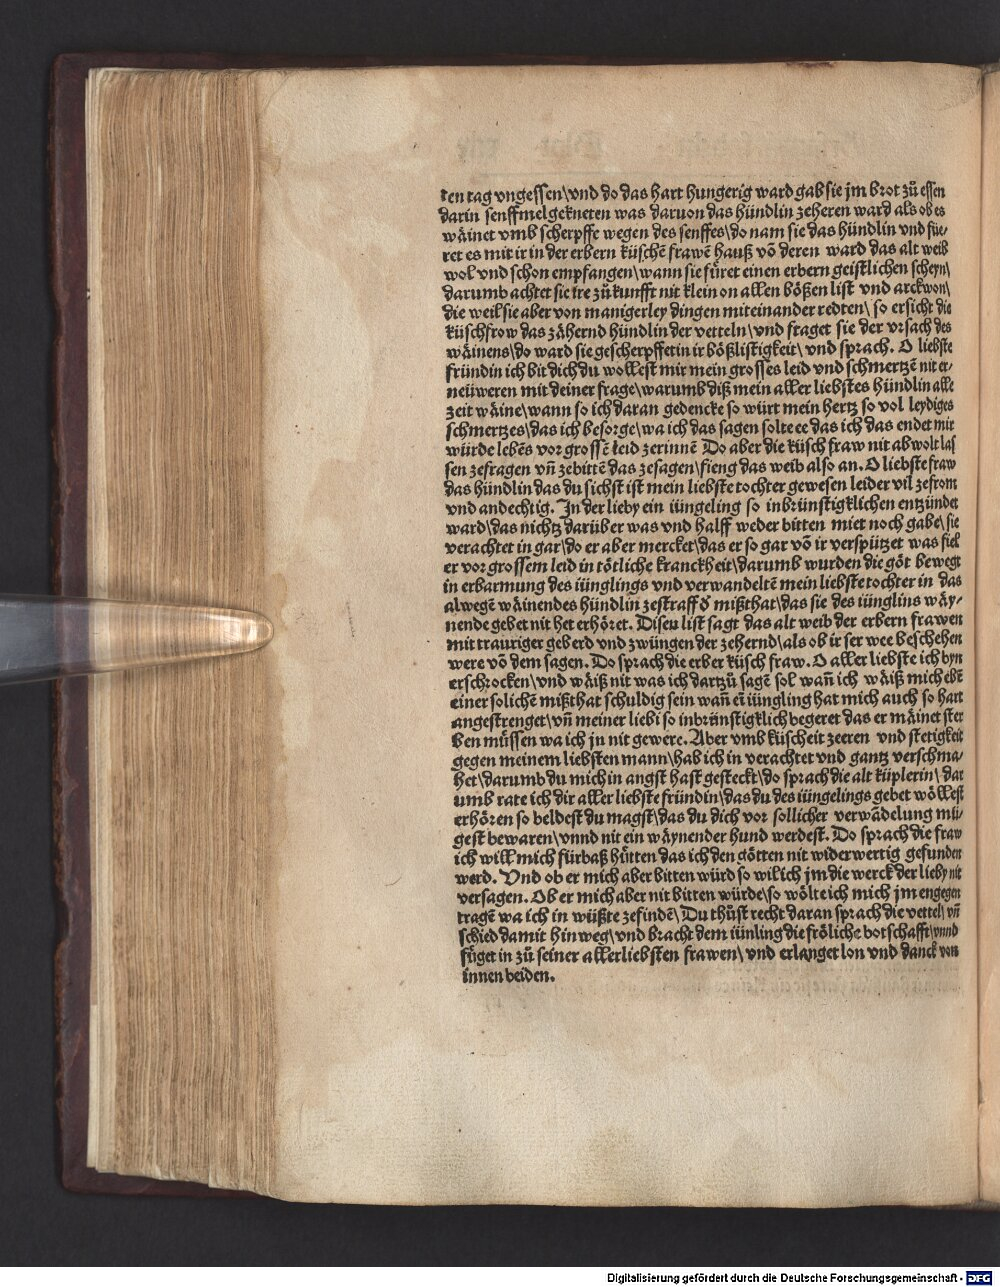 ten tag vngessen\vnd do das hart hungerig ward gab sie jm brot zů essen
darin senffmel gekneten was daruon das hündlin zeheren ward als ob es
wäinet vmb scherpffe wegen des senffes\do nam sie das hündlin vnd füe-
ret es mit ir in der erbern küschē frawē hauß vō deren ward das alt weib
wol vnd schon empfangen\wann sie füret einen erbern geistlichen scheyn\
darumb achtet sie ire zůkunfft nit klein on allen bößen list vnd arckwon\
die weil sie aber von manigerley dingen miteinander redten\ so ersicht die
küschfrow das zähernd hündlin der vetteln\vnd fraget sie der vrsach des
wäinens\do ward sie gescherpffet in ir bößlistigkeit\ vnd sprach. O liebste
fründin ich bit dich du wollest mir mein grosses leid vnd schmertzē nit er-
neüweren mit deiner frage\warumb diß mein aller liebstes hündlin alle
zeit wäine\wann so ich daran gedencke so würt mein hertz so vol leydiges
schmertzes\das ich besorge\wa ich das sagen solte ee das ich das endet mir
würde lebēs vor grossē leid zerinnē Do aber die küsch fraw nit ab wolt las
sen zefragen vñ zebittē das zesagen\fieng das weib also an. O liebste fraw
das hündlin das du sichst ist mein liebste tochter gewesen leider vil zefrom
vnd andechtig. In der lieby ein iüngeling so inbrünstigklichen entzündet
ward\das nichtz darüber was vnd halff weder bitten miet noch gabe\sie
verachtet in gar\do er aber mercket\das er so gar vō ir verspützet was fiel
er vor grossem leid in tötliche kranckheit\darumb wurden die göt bewegt
in erbarmung des iünglings vnd verwandeltē mein liebste tochter in das
alwegē wäinendes hündlin zestraff ð mißthat\das sie des iünglins wäy-
nende gebet nit het erhöret. Disen list sagt das alt weib der erbern frawen
mit trauriger geberd vnd zwüngen der zehernd\als ob ir ser wee beschehen
were vō dem sagen. Do sprach die erber küsch fraw. O aller liebste ich byn
erschrocken\vnd wäiß nit was ich dartzů sagē sol wañ ich wäiß mich ebē
einer solichē mißthat schuldig sein wañ eī iüngling hat mich auch so hart
angestrenget\vñ meiner liebi so inbrünstigklich begeret das er mäinet ster
ben müssen wa ich jn nit gewere. Aber vmb küscheit zeeren vnd stetigkeit
gegen meinem liebsten mann\hab ich in verachtet vnd gantz verschma-
het\darumb du mich in angst hast gesteckt\do sprach die alt küplerin\ dar
umb rate ich dir aller liebste fründin\das du des iüngelings gebet wöllest
erhören so beldest du magst\das du dich vor sollicher verwādelung mü-
gest bewaren\vnnd nit ein wäynender hund werdest. Do sprach die fraw
ich will mich fürbaß hütten das ich den götten nit widerwertig gefunden
werd. Vnd ob er mich aber bitten würd so wil ich jm die werck der lieby nit
versagen. Ob er mich aber nit bitten würde\so wölte ich mich jm engegen
tragē wa ich in wüßte zefindē\ Du thůst recht daran sprach die vettel\ vñ
schied damit hinweg\vnd bracht dem iünling die fröliche botschafft\vnnd
füget in zů seiner allerliebsten frawen\ vnd erlanget lon vnd danck von
innen beiden.
Digitalisierung gefördert durch die Deutsche Forschungsgemeinschaft - DFG